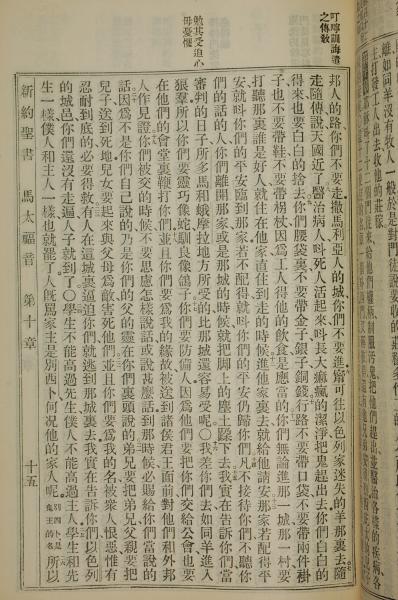 叮嚀訓誨遣
之傳教
勉其受迫心
毋憂懼
邦人的路你們不要走撒馬利亞人的城你們不要進甯可往以色列家迷失的羊那裏去隨
走隨傳說天國近了醫治病人叫死人活起來叫長大痲瘋的潔淨把鬼趕出去你們白白的
得來也要白白的捨去你們腰袋裏不要帶金子銀子銅錢行路不要帶口袋不要帶兩件褂
子也不要帶鞋不要帶柺杖因爲工人得他的飲食是應當的你們無論進那一城那一村要
打聽那裏誰是好人就住在他家直住到走的時候進他家裏去就給他請安那家若配得平
安就叫你們的平安臨到那家若不配得就叫你們的平安仍歸你們凡不接待你們不聽你
們的話的人你們離開那家或是那城的時候就把脚上的塵土跺下去我實在告訴你們當
審判的日子所多馬和蛾摩拉地方所受的比那城還容易受呢〇我差你們去如同羊進入
狼羣所以你們要靈巧像蛇馴良像鴿子你們要防備人因爲他們要把你們交給公會也要
在他們的會堂裏鞭打你們並且你們要爲我的緣故被送到諸侯君王面前對他們和外邦
人作見證你們被交的時候不要思慮怎樣說話或說甚麼話到那時候必賜給你們當說的
話因爲不是你們自己說的乃是你們的父的靈在你們裏頭說的弟兄要把弟兄父親要把
兒子送到死地兒女要起來與父母爲敵害死他們並且你們要爲我的名被衆人恨惡惟有
忍耐到底的必要得救有人在這城裏逼迫你們就逃到那城裏去我實在告訴你們以色列
的城邑你們還沒有走遍人子就到了〇學生不能高過先生僕人不能高過主人學生和先
生一樣僕人和主人一樣也就罷了人旣罵家主是別西卜何况他的家人呢別西卜是鬼王的名所以
新約聖書 馬太福音 第十章 十五